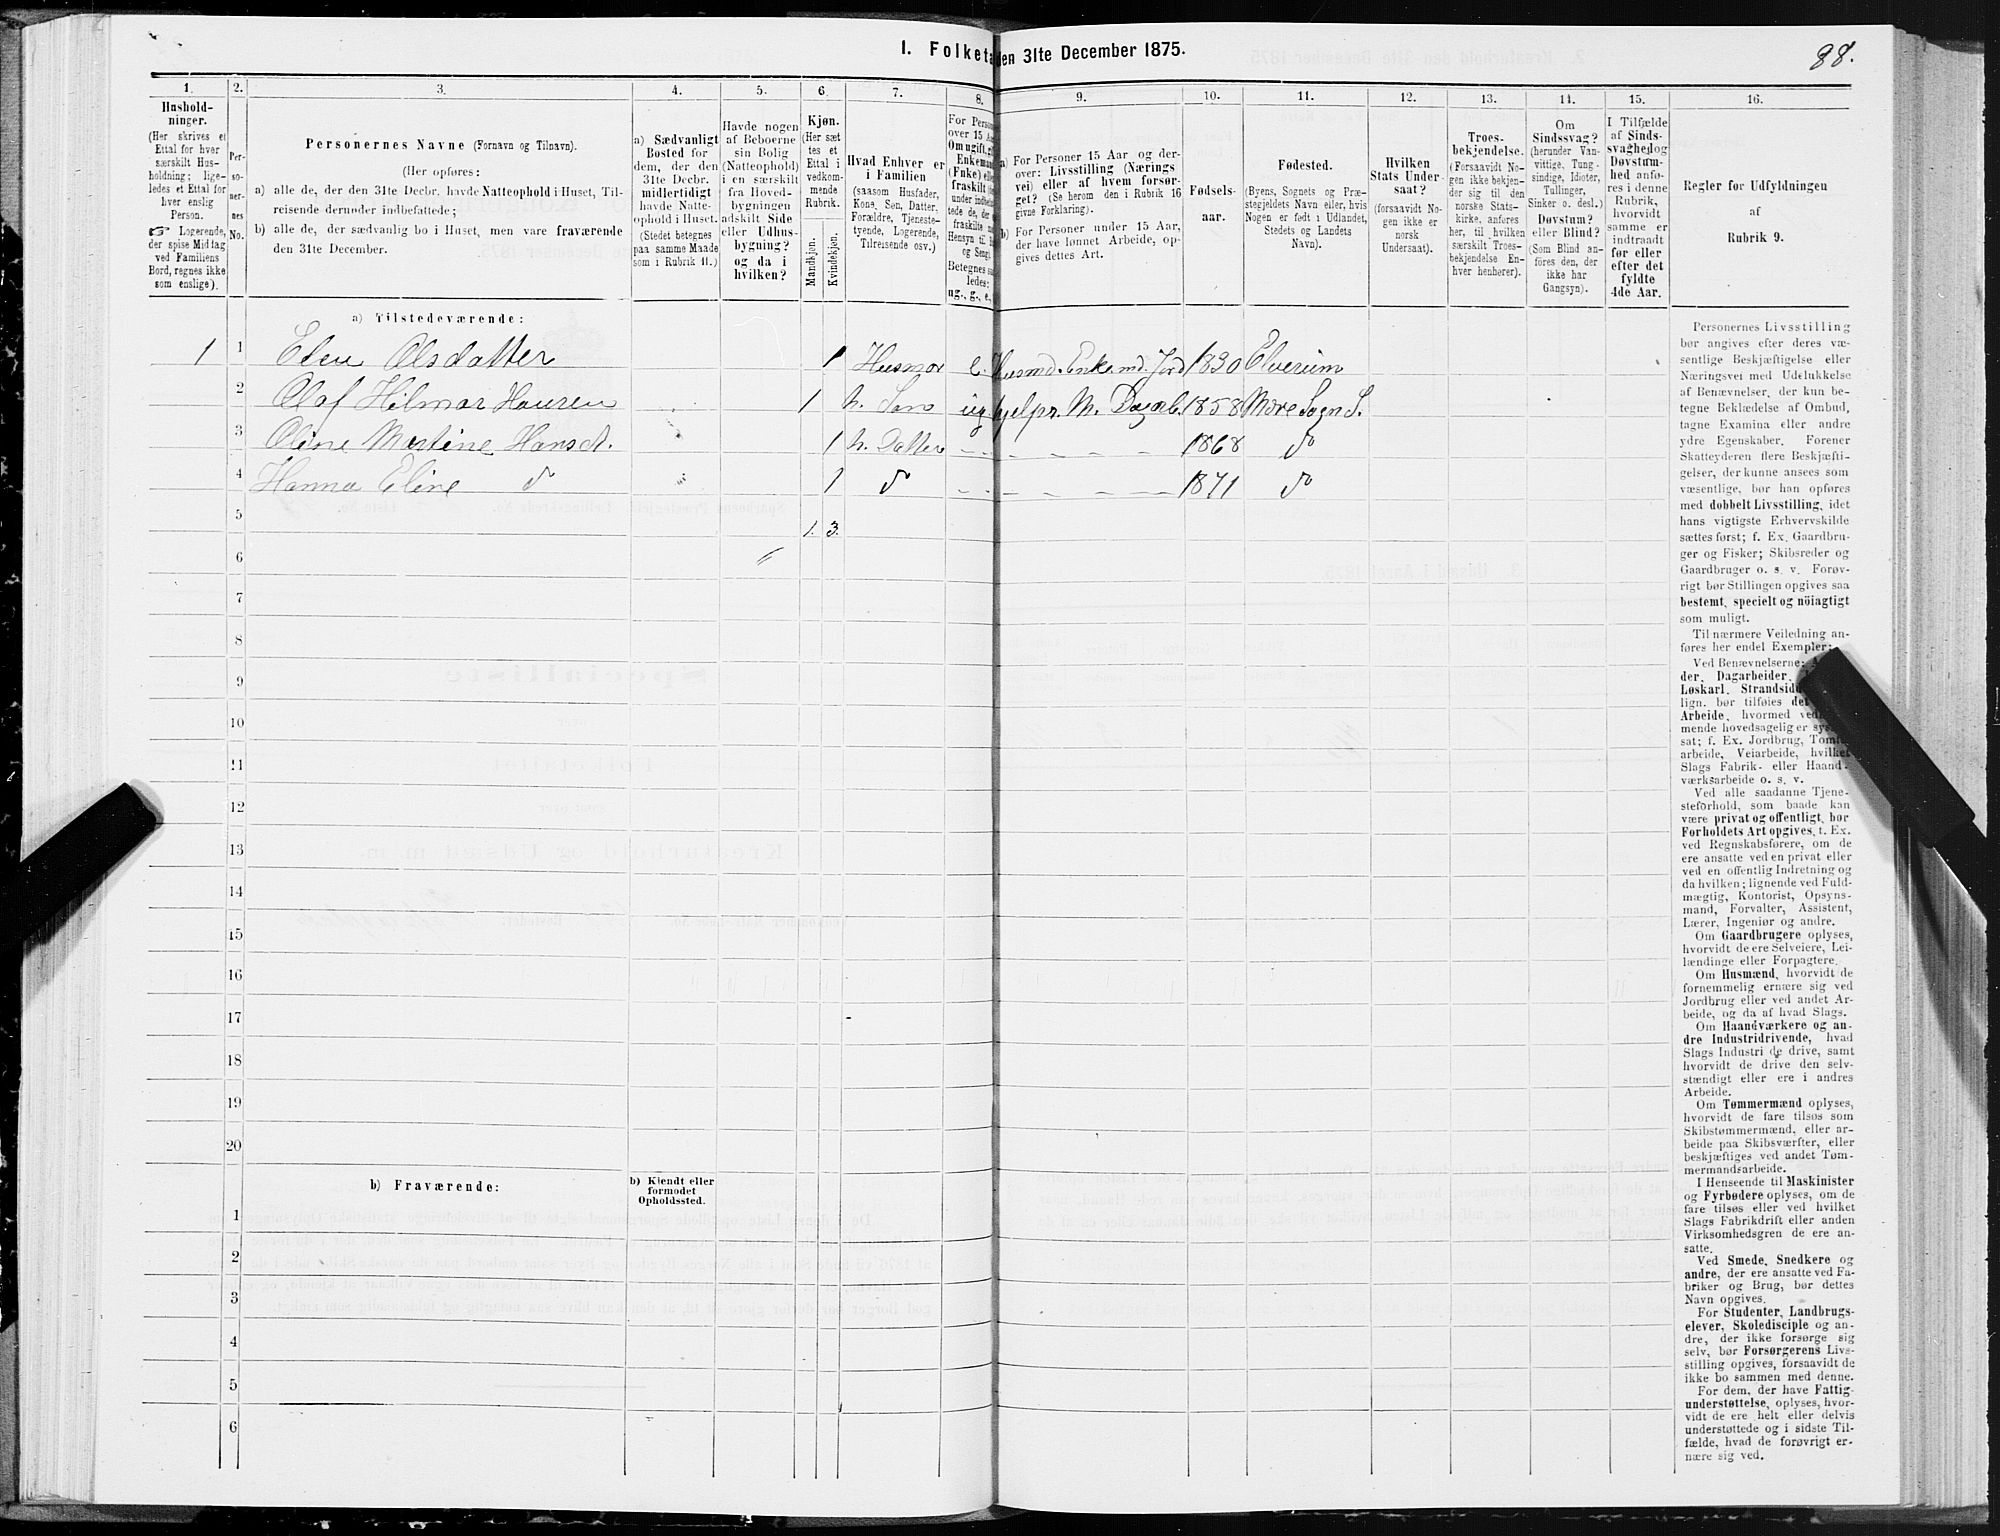 I. Folketa den 31te December 1875.
88.
1.
Hushold-
ninger.
(Her skrives et
Ettal for hver
særskilt Hus-
holdning; lige-
ledes et Ettal for
hver enslig
Person.
☞ Logerende,
der spise Middag
ved Familiens
Bord, regnes ikke
som enslige).
2.
Per-
so-
ner-
nes
No.
3.
Personernes Navne (Fornavn og Tilnavn).
(Her opføres:
a) alle de, der den 31te Decbr. havde Natteophold i Huset, Til-
reisende derunder indbefattede;
b) alle de, der sædvanlig bo i Huset, men vare fraværende
den 31te December.
4.
a) Sædvanligt
Bosted for
dem, der den
31te Decbr.
midlertidigt
havde Natte-
ophold i Huset.
(Stedet betegnes
paa samme Maade
som i Rubrik 11.)
5.
Havde nogen
af Beboerne
sin Bolig
(Natteophold)
i en særskilt
fra Hoved-
bygningen
adskilt Side
eller Udhus-
bygning?
og da i
hvilken?
6.
Kjøn.
(Her sæt
tes et
Ettal i
vedkom-
mende
Rubrik.
Mandkjøn.
Kvindekjøn.
7.
Hvad Enhver er
i Familien
(saasom Husfader,
Kone, Søn, Datter.
Forældre, Tjeneste-
tyende, Logerende,
Tilreisende osv.)
8.
For Person
over 15 Aa
Om ugift, gi
Enkemand
(Enke) ell
fraskilt
Betegnes
ledes:
ug., g., e.,
9.
a) For Personer 15 Aar og der-
over: Livsstilling (Nærings
vei) eller af hvem forsør-
get? (Se herom den i Rubrik 16
givne Forklaring.)
b) For Personer under 15 Aar,
der have lønnet Arbeide, op-
gives dettes Art.
10.
Fødsels-
aar.
11.
Fødested.
(Byens, Sognets og Præ-
stegjeldets Navn eller, hvis
Nogen er født i Udlandet,
Stedets og Landets
Navn).
12.
Hvilken
Stats Under
saat?
(forsaavidt No-
gen ikke er
norsk
Undersaat).
13.
Troes-
bekjendelse.
(Forsaavidt No-
gen ikke bekjen-
der sig til den
norske Stats-
kirke, anføres
her, til hvilken
særskilt Troes-
bekjendelse En-
hver henhører).
14.
Om
Sindssvag?
(herunder Van-
vittige, Tung-
sindige, Idioter,
Tullinger,
Sinker o. desl.)
Døvstum?
eller Blind?
(Som Blind an-
føres den, der
ikke har
Gangsyn).
15.
I Tilfælde
af Sinds-
svaghed og
Døvstum-
hed anfø-
res i denne
Rubrik,
hvorvidt
samme er
indtraadt
før eller
efter det
fyldte
4de Aar.
16.
Regler før Udfyldningen
af
Rubrik 9.
a) Tilstedeværende:
1 1 Elen Olsdatter 1 Husmor e. Husmd. Enke md. Jord 1830 Elverum
2 Olaf Hilmar Hansen 1 h. Søn ug hjelpr. M. Dagarb. 1858 Mære Sogn S.
3 Oline Martine Hansd. 1 h. Datter 1868 do
4 Hanna Eline do 1 do 1871 do
5 1. 3.
6
7
8
9
10
11
12
13
14
15
16
17
18
19
20
b) Fraværende:
b) Kjendt eller
formodet
Opholdssted.
1
2
3
4
5
6
Personernes Livsstilling
bør angives efter deres væ-
sentlige Beskjæftigelse eller
Næringsvei med Udelukkelse
af Benævnelser, der kun be-
tegne Beklædelse af Ombud,
tagne Examina eller andre
ydre Egenskaber. Forener
Skatteyderen flere Beskjæfti-
gelser, der kunne ansees som
væsentlige, bør han opføres
med dobbelt Livsstilling, idet
hans vigtigste Erhvervskilde
sættes først; f. Ex. Gaardbru-
ger og Fisker; Skibsreder og
Gaardbruger o. s. v. Forøv-
rigt bør Stillingen opgives saa
bestemt, specielt og nöiagtigt
som muligt.
Til nærmere Veiledning an-
føres her endel Exempler:
Ved Benævnelserne:
der, Dagarbeider,
Løskarl, Strandsid
lign. bør tilføies de
Arbeide, hvormed ved
mende hovedsagelig er sys
sat; f. Ex. Jordbrug, Tomt
arbeide, Veiarbeide, hvilket
Slags Fabrik- eller Haand-
værksarbeide o. s. v.
Ved alle saadanne Tjene-
steforhold, som baade kan
være privat og offentligt, bør
Forholdets Art opgives, t. Ex.
ved Regnskabsførere, om de
ere ansatte ved en privat eller
ved en offentlig Indretning og
da hvilken; lignende ved Fuld-
mægtig, Kontorist, Opsyns-
mand, Forvalter, Assistent,
Lærer, Ingeniør og andre.
Om Gaardbrugere oplyses,
hvorvidt de ere Selveiere, Lei-
lændinge eller Forpagtere.
Om Husmænd, hvorvidt de
fornemmelig ernære sig ved
Jordbrug eller ved andet Ar-
beide, og da af hvad Slags.
Om Haandværkere og an-
dre Industridrivende, hvad
Slags Industri de drive, samt
hvorvidt de drive den selv-
stændigt eller ere i andres
Arbeide.
Om Tømmermænd oplyses,
hvorvidt de fare tilsøs som
Skibstømmermænd, eller ar-
beide paa Skibsværfter, eller
beskjæftiges ved andet Tøm-
mermandsarbeide.
I Henseende til Maskinister
og Fyrbødere oplyses, om de
fare tilsøs eller ved hvilket
Slags Fabrikdrift eller anden
Virksomhedsgren de ere an-
satte.
Ved Smede, Snedkere og
andre, der ere ansatte ved Fa-
briker og Brug, bør dettes
Navn opgives.
For Studenter, Landbrugs-
elever, Skoledisciple og an-
dre, der ikke forsørge sig
selv, bør Forsørgerens Livs-
stilling opgives, forsaavidt de
ikke bo sammen med denne.
For dem, der have Fattig-
understøttelse, oplyses, hvor-
vidt de ere helt eller delvis
understøttede og i sidste Til-
fælde, hvad de forøvrigt er-
nære sig ved.